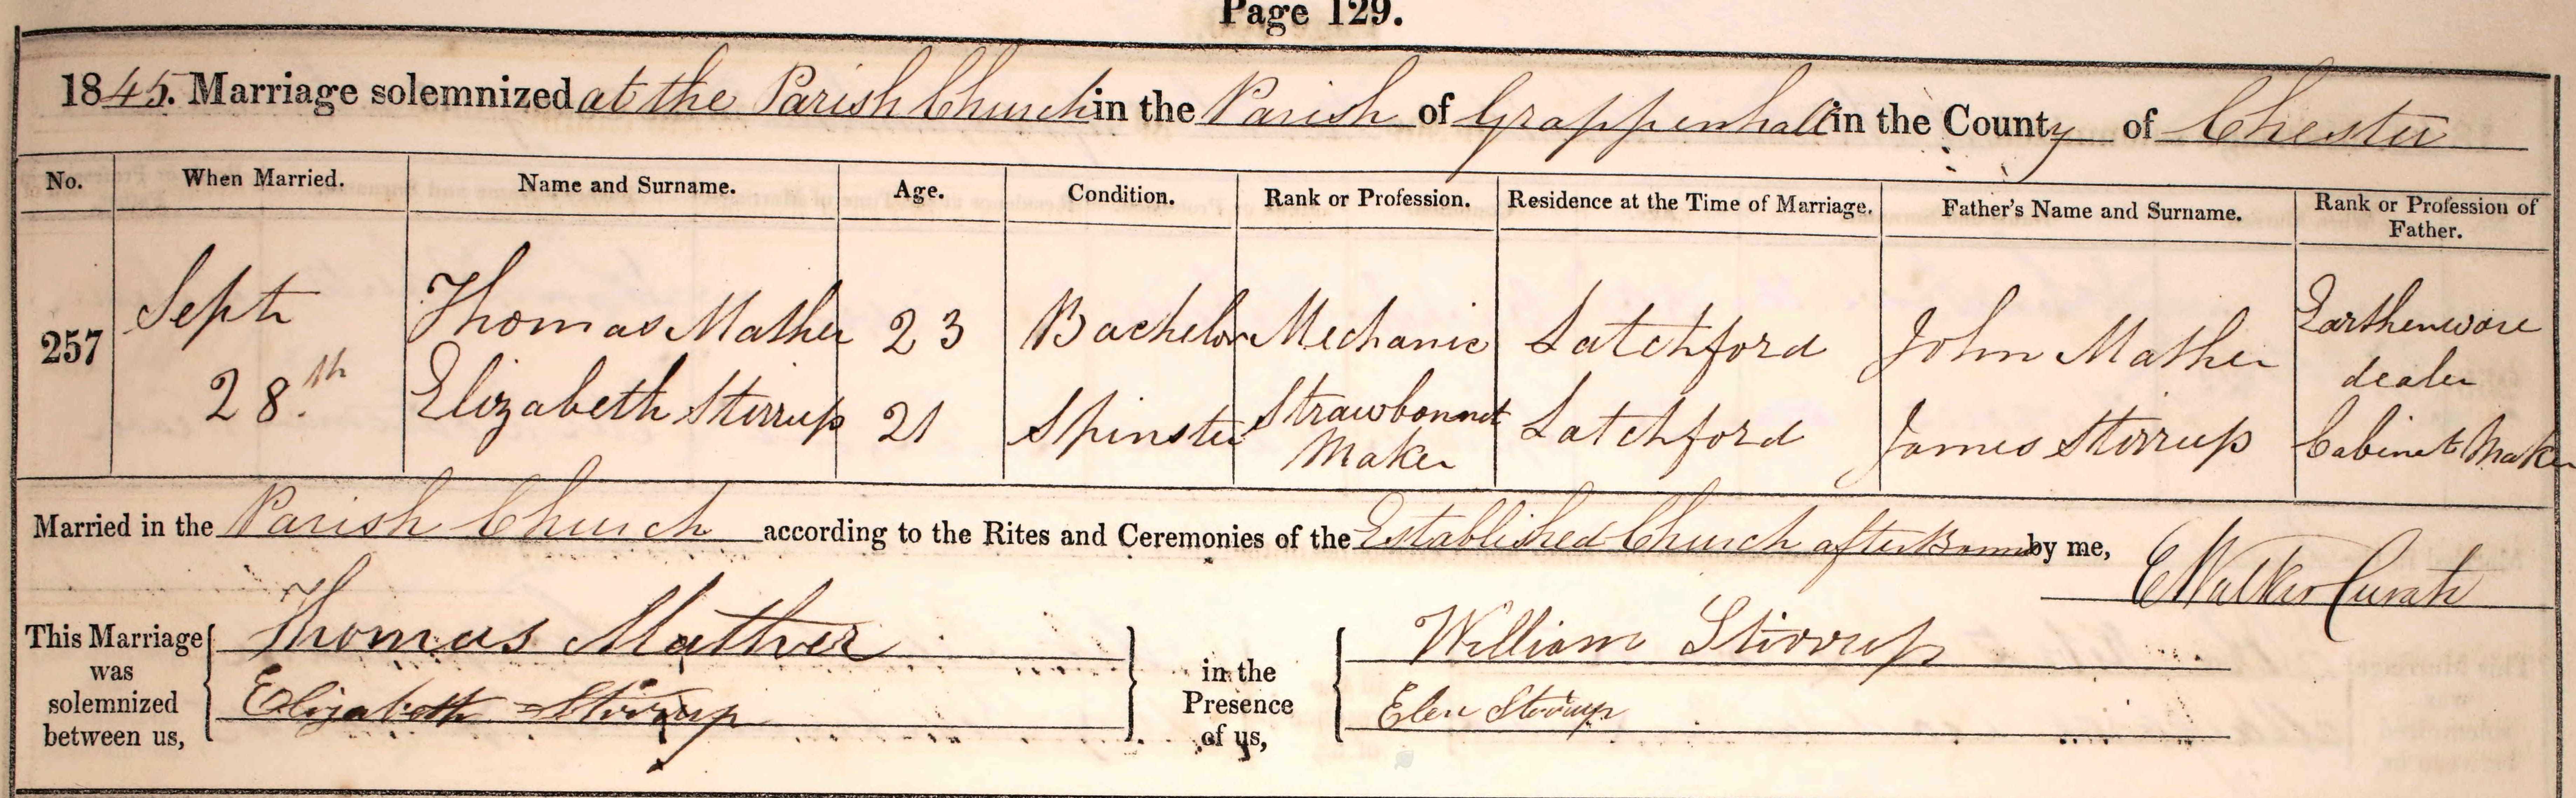 Page 129.
1845. Marriage solemnized at the Parish Church in the Parish of Grappenhall in the County of Chester
No. When Married. Name and Surname. Age. Condition. Rank or Profession. Residence at the Time of Marriage. Father's Name and Surname. Rank or Profession of Father.
257 Sept 28.th
Thomas Mather 23 Bachelor Mechanic Latchford John Mather Earthenware dealer
Elizabeth Stirrup 21 Spinster Strawbonnet Maker Latchford James Stirrup Cabinet Maker
Married in the Parish Church according to the Rites and Ceremonies of the Established Church after Banns by me,
E Walker Curate
This Marriage was solemnized between us,
Thomas Mather
Elizabeth Stirrup
in the Presence of us,
William Stirrup
Elen Stirrup